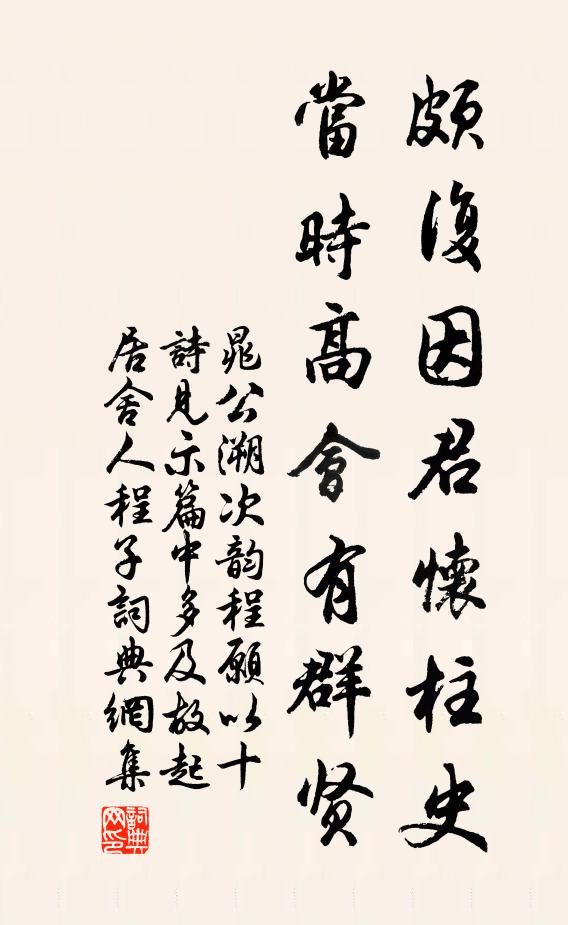 頗復因君懷柱史
當時高會有群贤
晁公溯次韵程願以十
詩見示篇中多及故起
居舍人程子詞典網集
詞典
网印